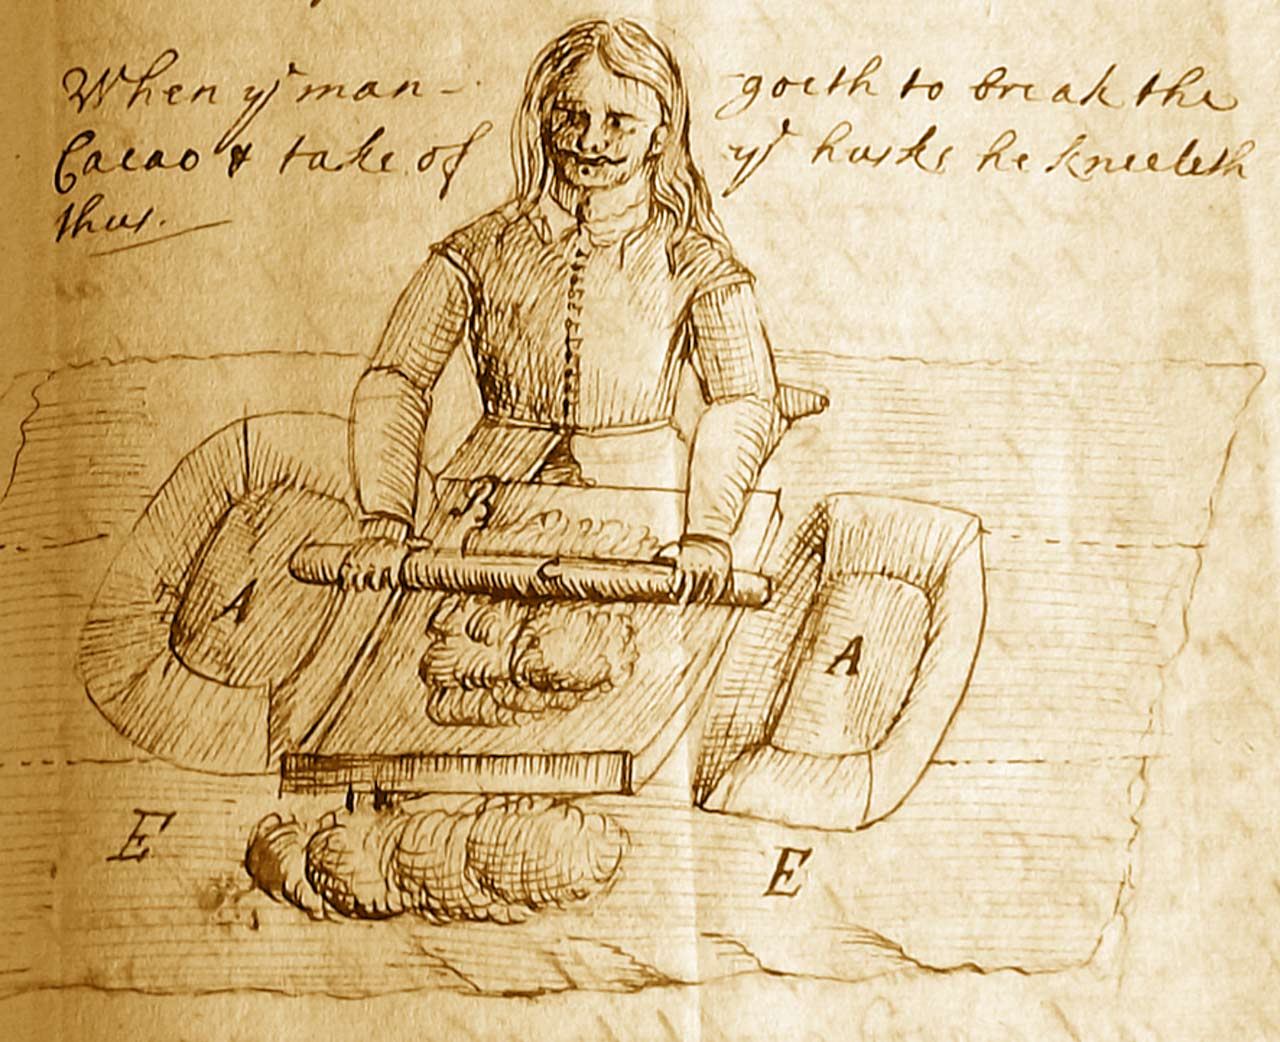 When yᵉ man - goeth to break the
Cacao & take of yᵉ huske he kneeleth
thus.
B
A
A
E
E